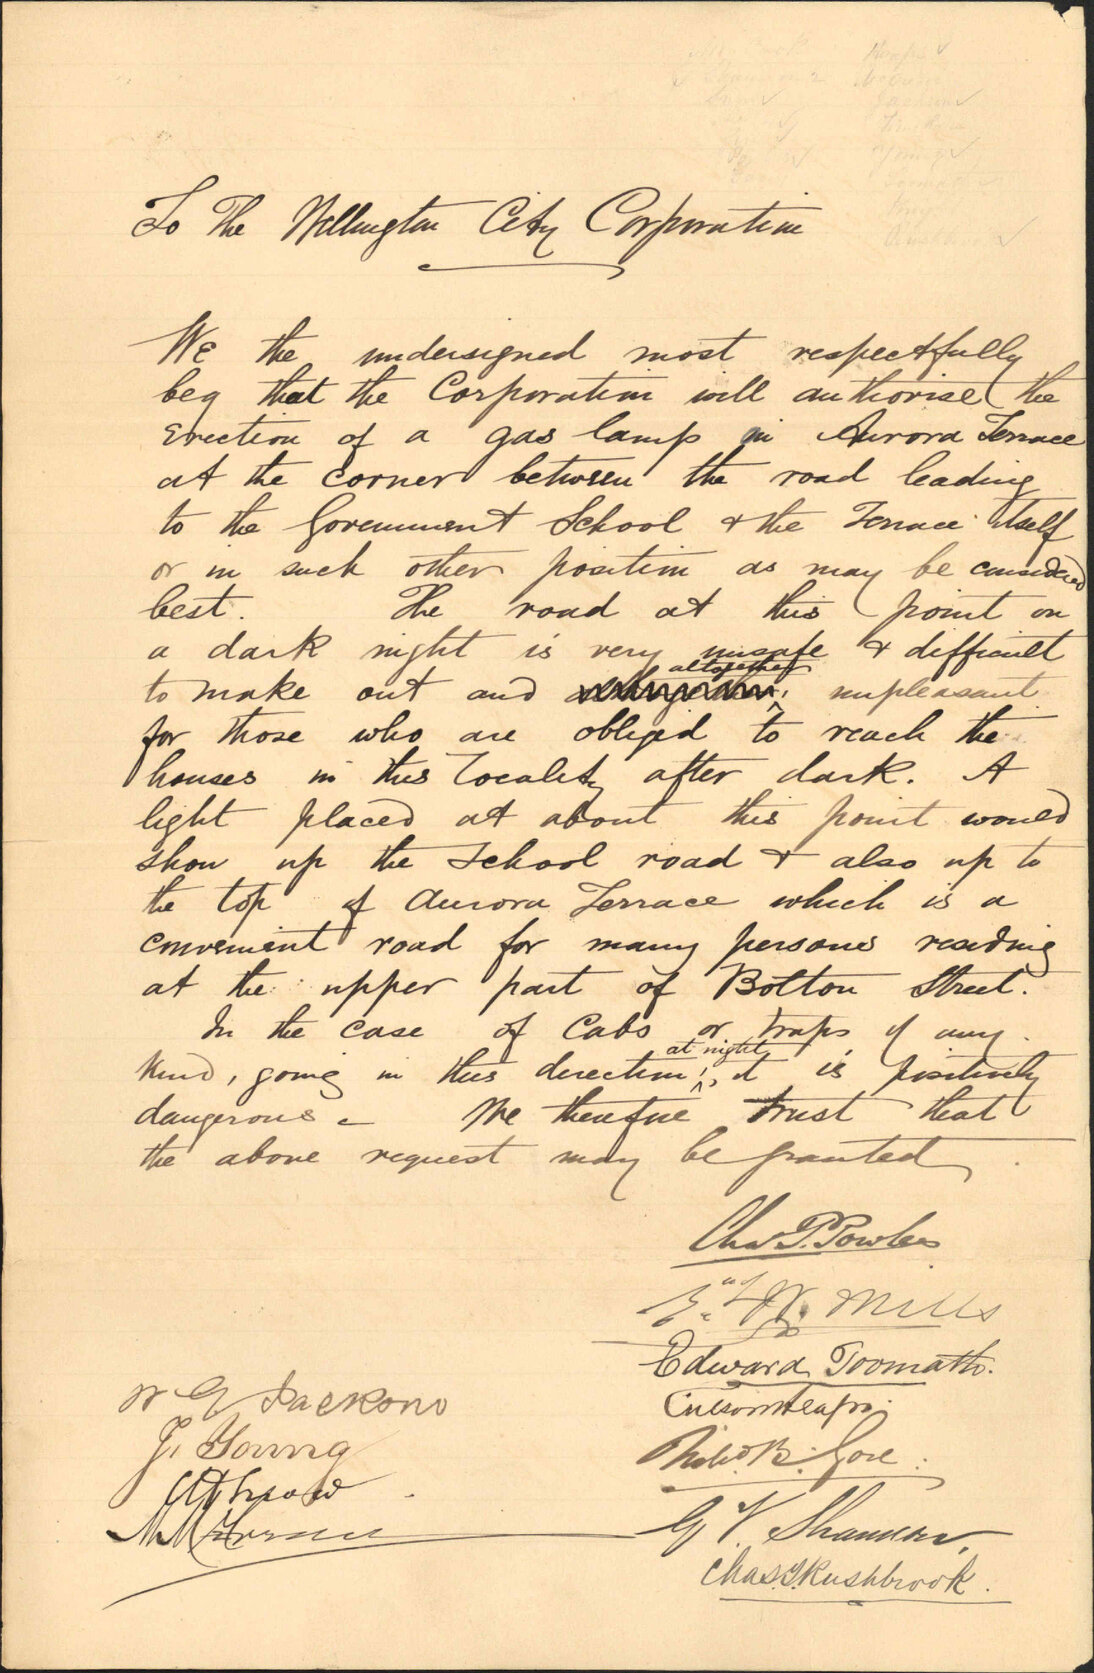 To The Wellington City Corporation
We the undersigned most respectfully
beg that the Corporation will authorise the
Erection of a gas lamp in Aurora Terrace
at the corner between the road leading
to the Government School & the Terrace itself
or in such other position as may be considered
best. The road at this point on
a dark night is very unsafe & difficult
altogether
to make out and unpleasant
for those who are obliged to reach the
houses in this Locality after dark. A
light placed at about this point would
show up the School road & also up to
the top of Aurora Terrace which is a
convenient road for many persons residing
at the upper part of Bolton Street.
In the case of Cabs or traps of any
at night
kind, going in this direction, it is positively
dangerous - We therefore trust that
the above request may be granted
Chas P. Powles
W. Mills
Edward Toomath.
B. Gore
G V Shannon.
Chas. J. Rushbrook.
W G Jackson
J. Young